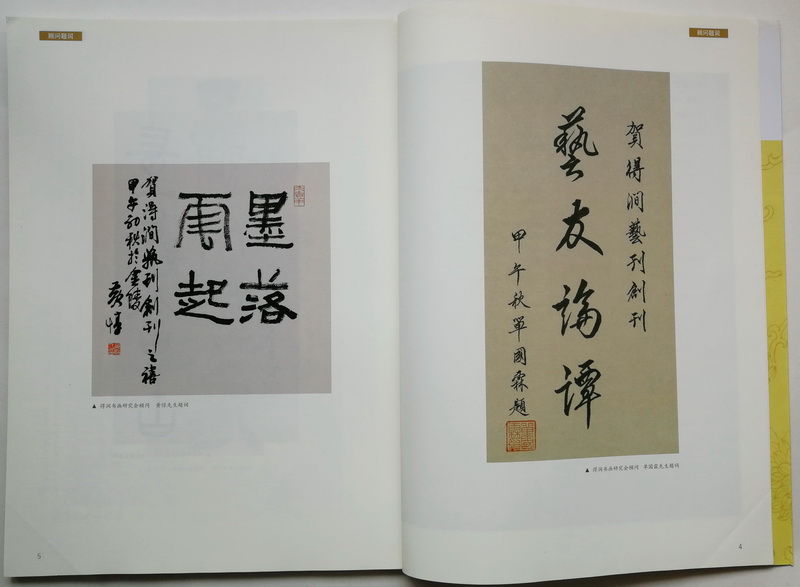 顾问题词
賀得澗藝刊創刊
藝友論譚
甲午秋單國霖題
▲ 得涧书画研究会顾问 单国霖先生题词
4
顾问题词
墨落
雲起
賀得澗藝刊創刊之禧
甲午初秋於金陵
黄惇
▲ 得涧书画研究会顾问 黄惇先生题词
5